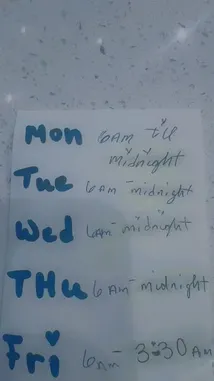 Mon 6AM til
midnight
Tue 6AM - midnight
Wed 6AM - midnight
THu 6AM - midnight
Fri 6AM - 3:30AM